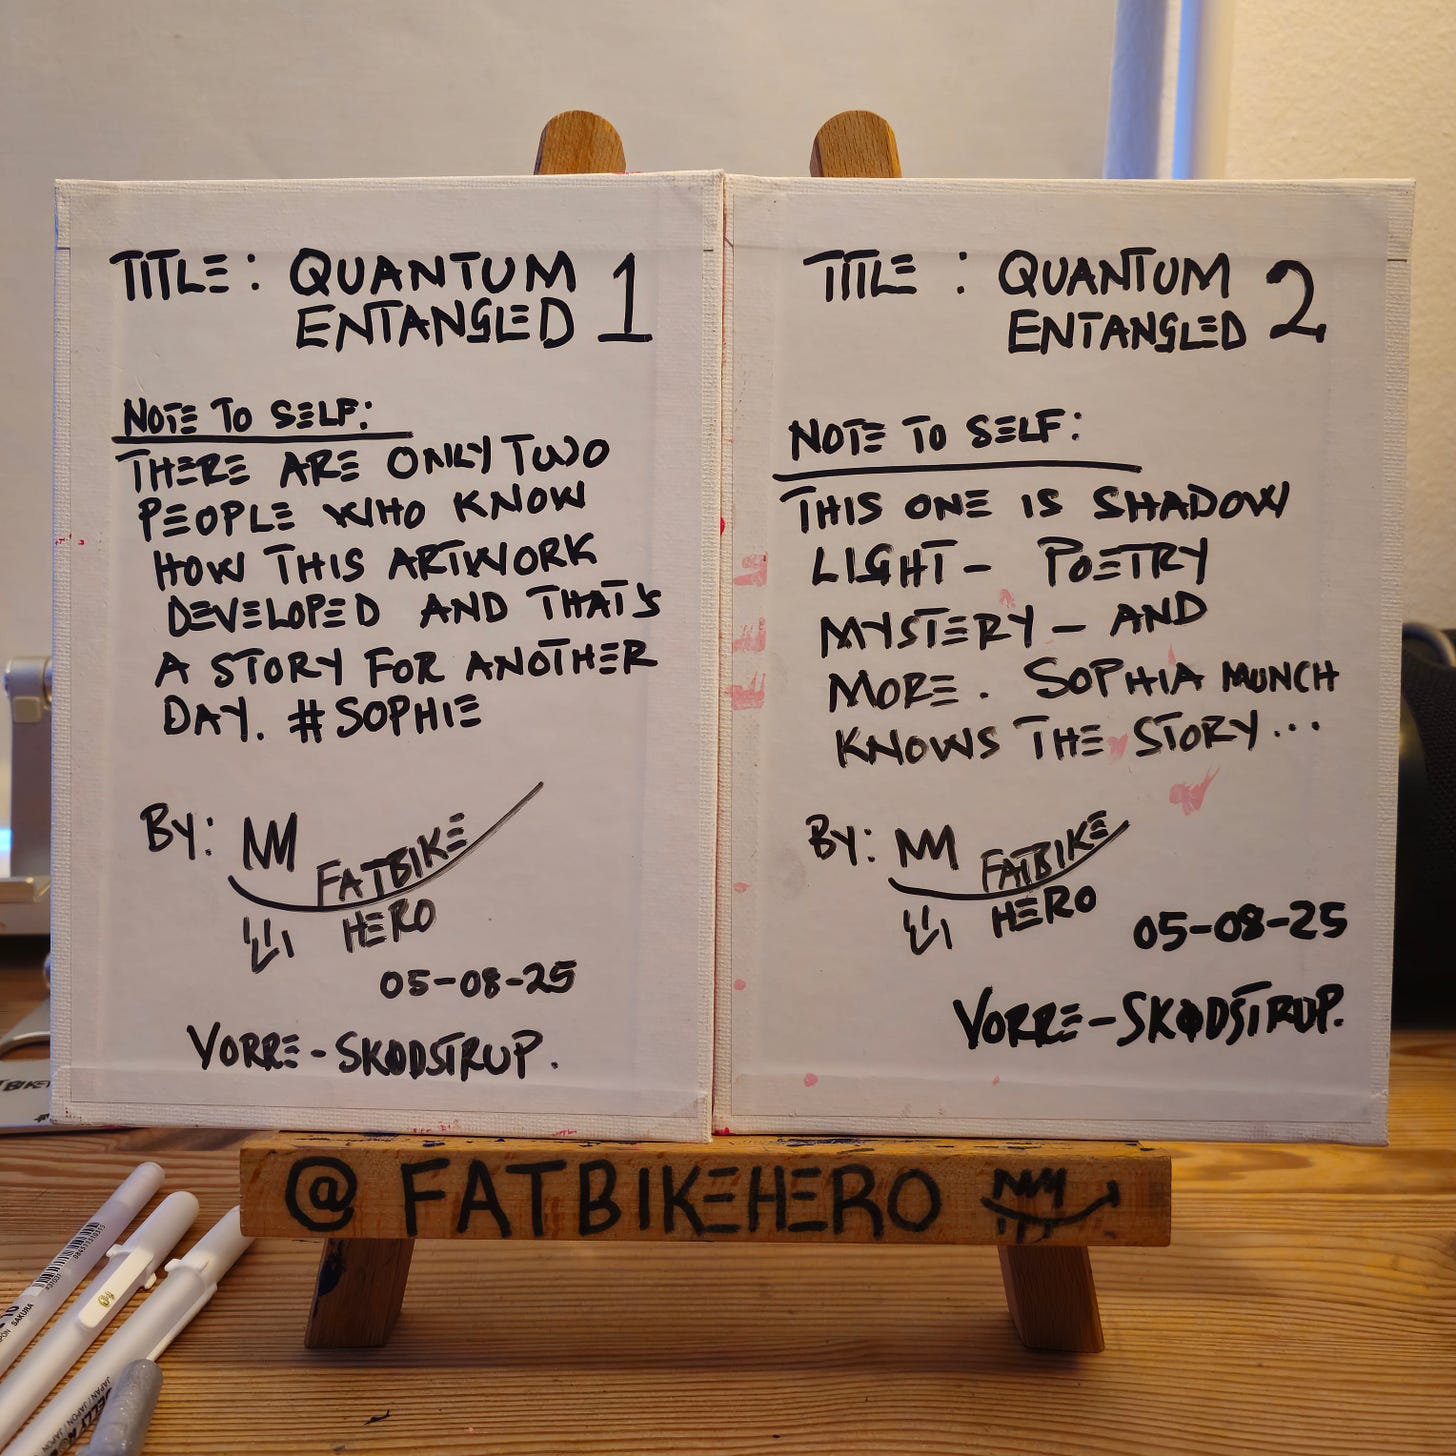 TITLE: QUANTUM
ENTANGLED 1
NOTE TO SELF:
THERE ARE ONLY TWO
PEOPLE WHO KNOW
HOW THIS ARTWORK
DEVELOPED AND THAT'S
A STORY FOR ANOTHER
DAY. #SOPHIE
BY:
FATBIKE
HERO
05-08-25
VORRE-SKØDSTRUP.
TITLE : QUANTUM
ENTANGLED 2
NOTE TO SELF:
THIS ONE IS SHADOW
LIGHT- POETRY
MYSTERY - AND
MORE. SOPHIA MUNCH
KNOWS THE STORY...
BY:
FATBIKE
HERO
05-08-25
VORRE-SKØDSTRUP.
@FATBIKEHERO
SAKURA
JAPAN/JAPON